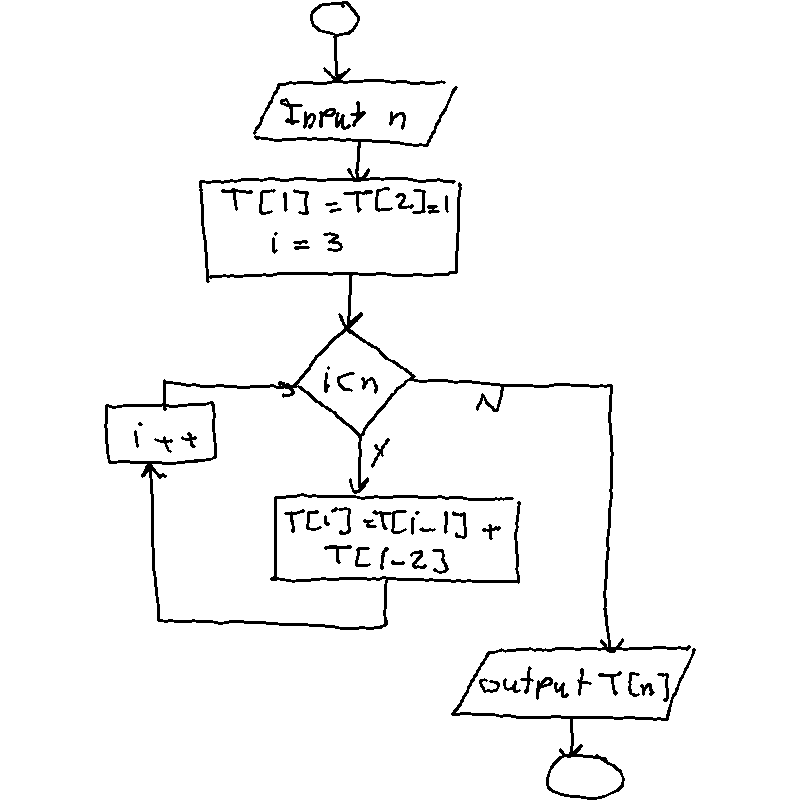 Input n
T[1]=T[2]=1
i = 3
i<n
N
i++
Y
T[i]=T[i-1]+
T[i-2]
output T[n]